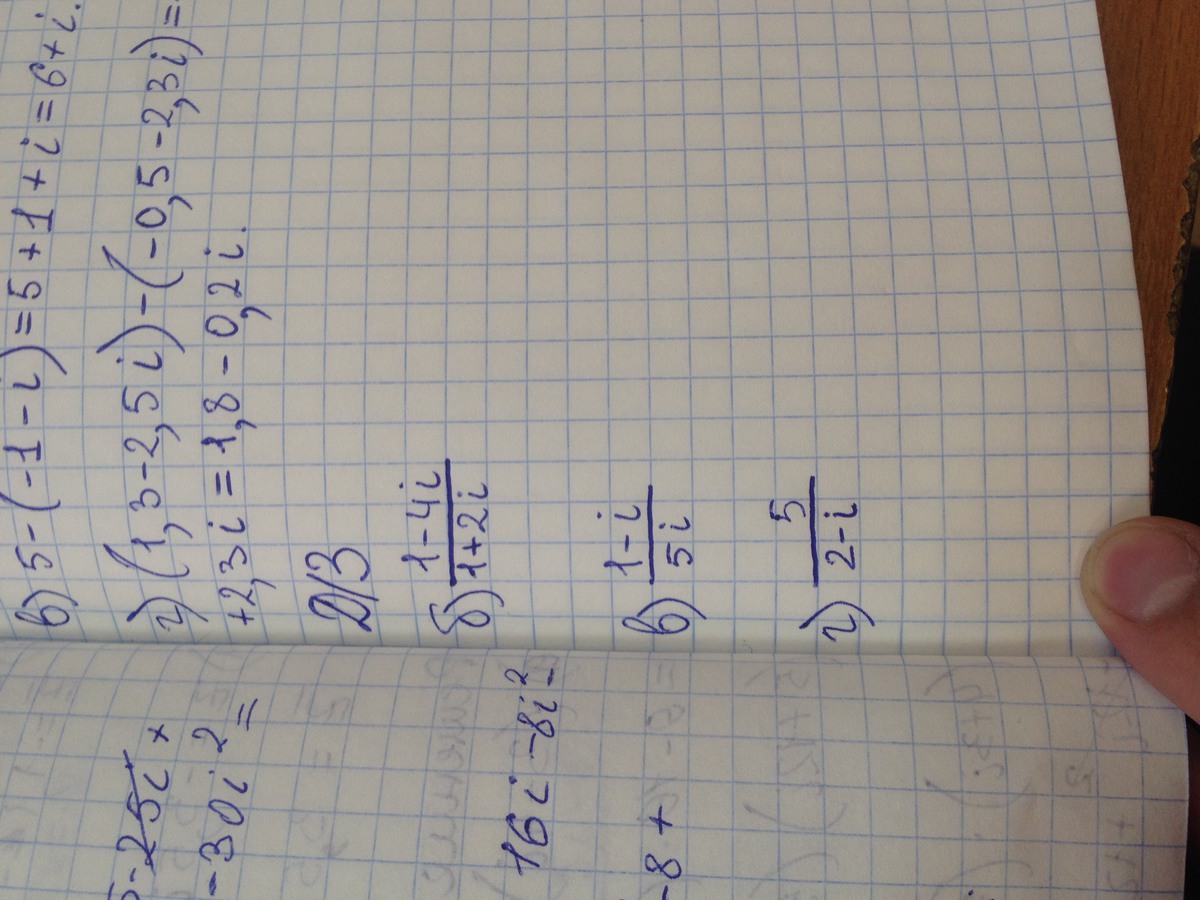 в) 5-(-1-i)=5+1+i=6+i.
г) (1,3-2,5i)-(-0,5-2,3i)=
+2,3i=1,8-0,2i.
Д/З
б) \frac{1-4i}{1+2i}
в) \frac{1-i}{5i}
г) \frac{5}{2-i}
-25i+
-30i²=
16i-8i²-
-8+